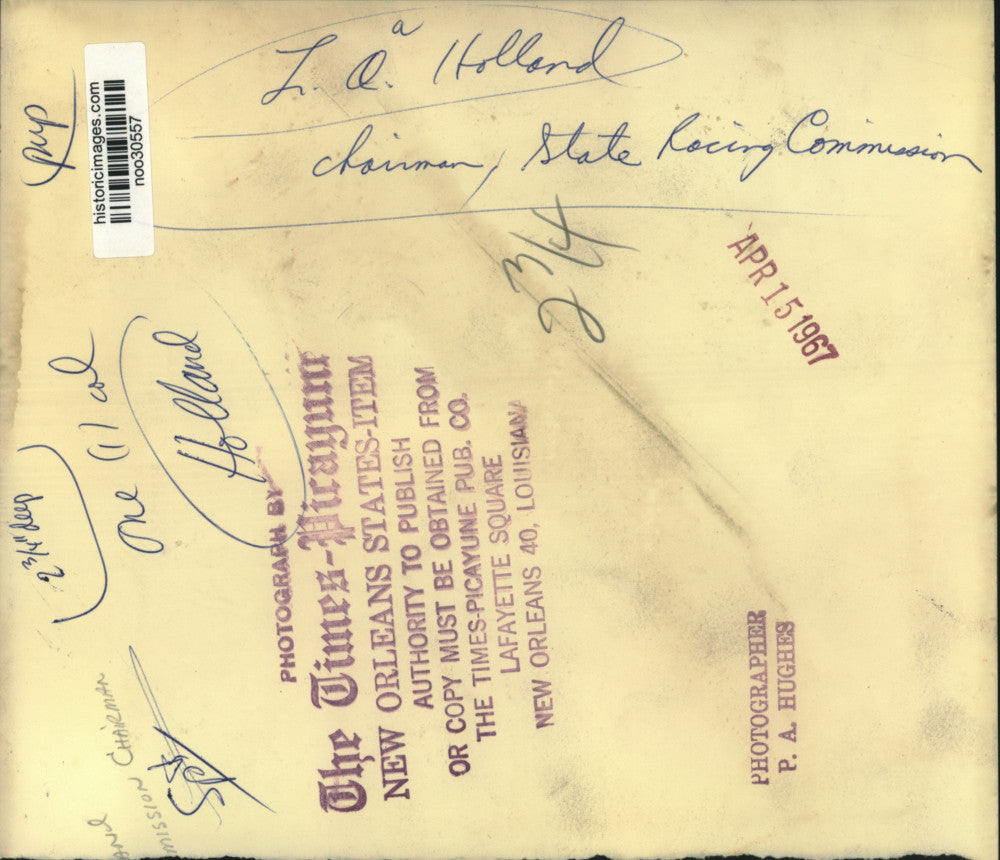 L. A. Holland
a
chairman, State Racing Commission
2 3/4
APR 15 1967
pup
historicimages.com
noo30557
2 3/4" deep
one (1) col
Holland
PHOTOGRAPH BY
The Times-Picayune
NEW ORLEANS STATES-ITEM
AUTHORITY TO PUBLISH
OR COPY MUST BE OBTAINED FROM
THE TIMES-PICAYUNE PUB. CO.
LAFAYETTE SQUARE
NEW ORLEANS 40, LOUISIANA
PHOTOGRAPHER
P. A. HUGHES
AND
MISSION CHAIRMAN